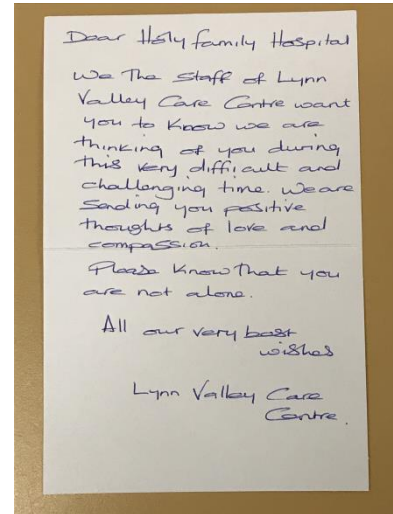 Dear Holy family Hospital
We The Staff of Lynn
Valley Care Centre want
you to know we are
thinking of you during
this very difficult and
challenging time. We are
Sending you positive
thoughts of love and
compassion.
Please Know That you
are not alone.
All our very best
wishes
Lynn Valley Care
Centre.